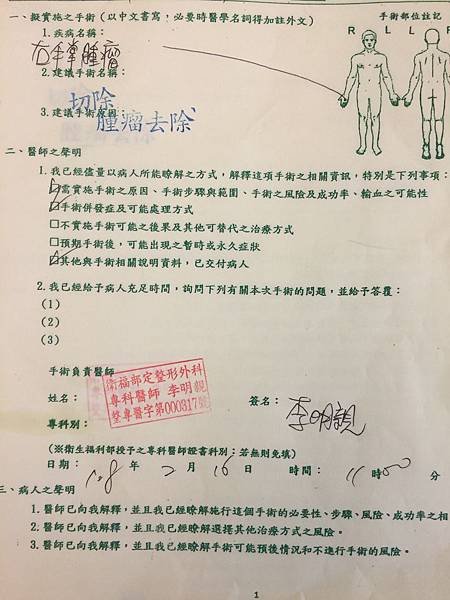 一、擬實施之手術(以中文書寫，必要時醫學名詞得加註外文)
手術部位註記
1. 疾病名稱：
R L L R
右手掌腫瘤
2. 建議手術名稱：
切除
3. 建議手術原因：
腫瘤去除
二、醫師之聲明
1. 我已經儘量以病人所能瞭解之方式，解釋這項手術之相關資訊，特別是下列事項：
☑需實施手術之原因、手術步驟與範圍、手術之風險及成功率、輸血之可能性
☑手術併發症及可能處理方式
□不實施手術可能之後果及其他可替代之治療方式
□預期手術後，可能出現之暫時或永久症狀
☑其他與手術相關說明資料，已交付病人
2. 我已經給予病人充足時間，詢問下列有關本次手術的問題，並給予答覆：
(1)
(2)
(3)
手術負責醫師
衛福部定整形外科
專科醫師 李明親
整專醫字第000317號
姓名：
簽名：李明親
專科別：
(※衛生福利部授予之專科醫師證書科別；若無則免填)
日期：108 年 2 月 16 日 時間：11 時00 分
三、病人之聲明
1. 醫師已向我解釋，並且我已經瞭解施行這個手術的必要性、步驟、風險、成功率之相
2. 醫師已向我解釋，並且我已經瞭解選擇其他治療方式之風險。
3. 醫師已向我解釋，並且我已經瞭解手術可能預後情況和不進行手術的風險。
1